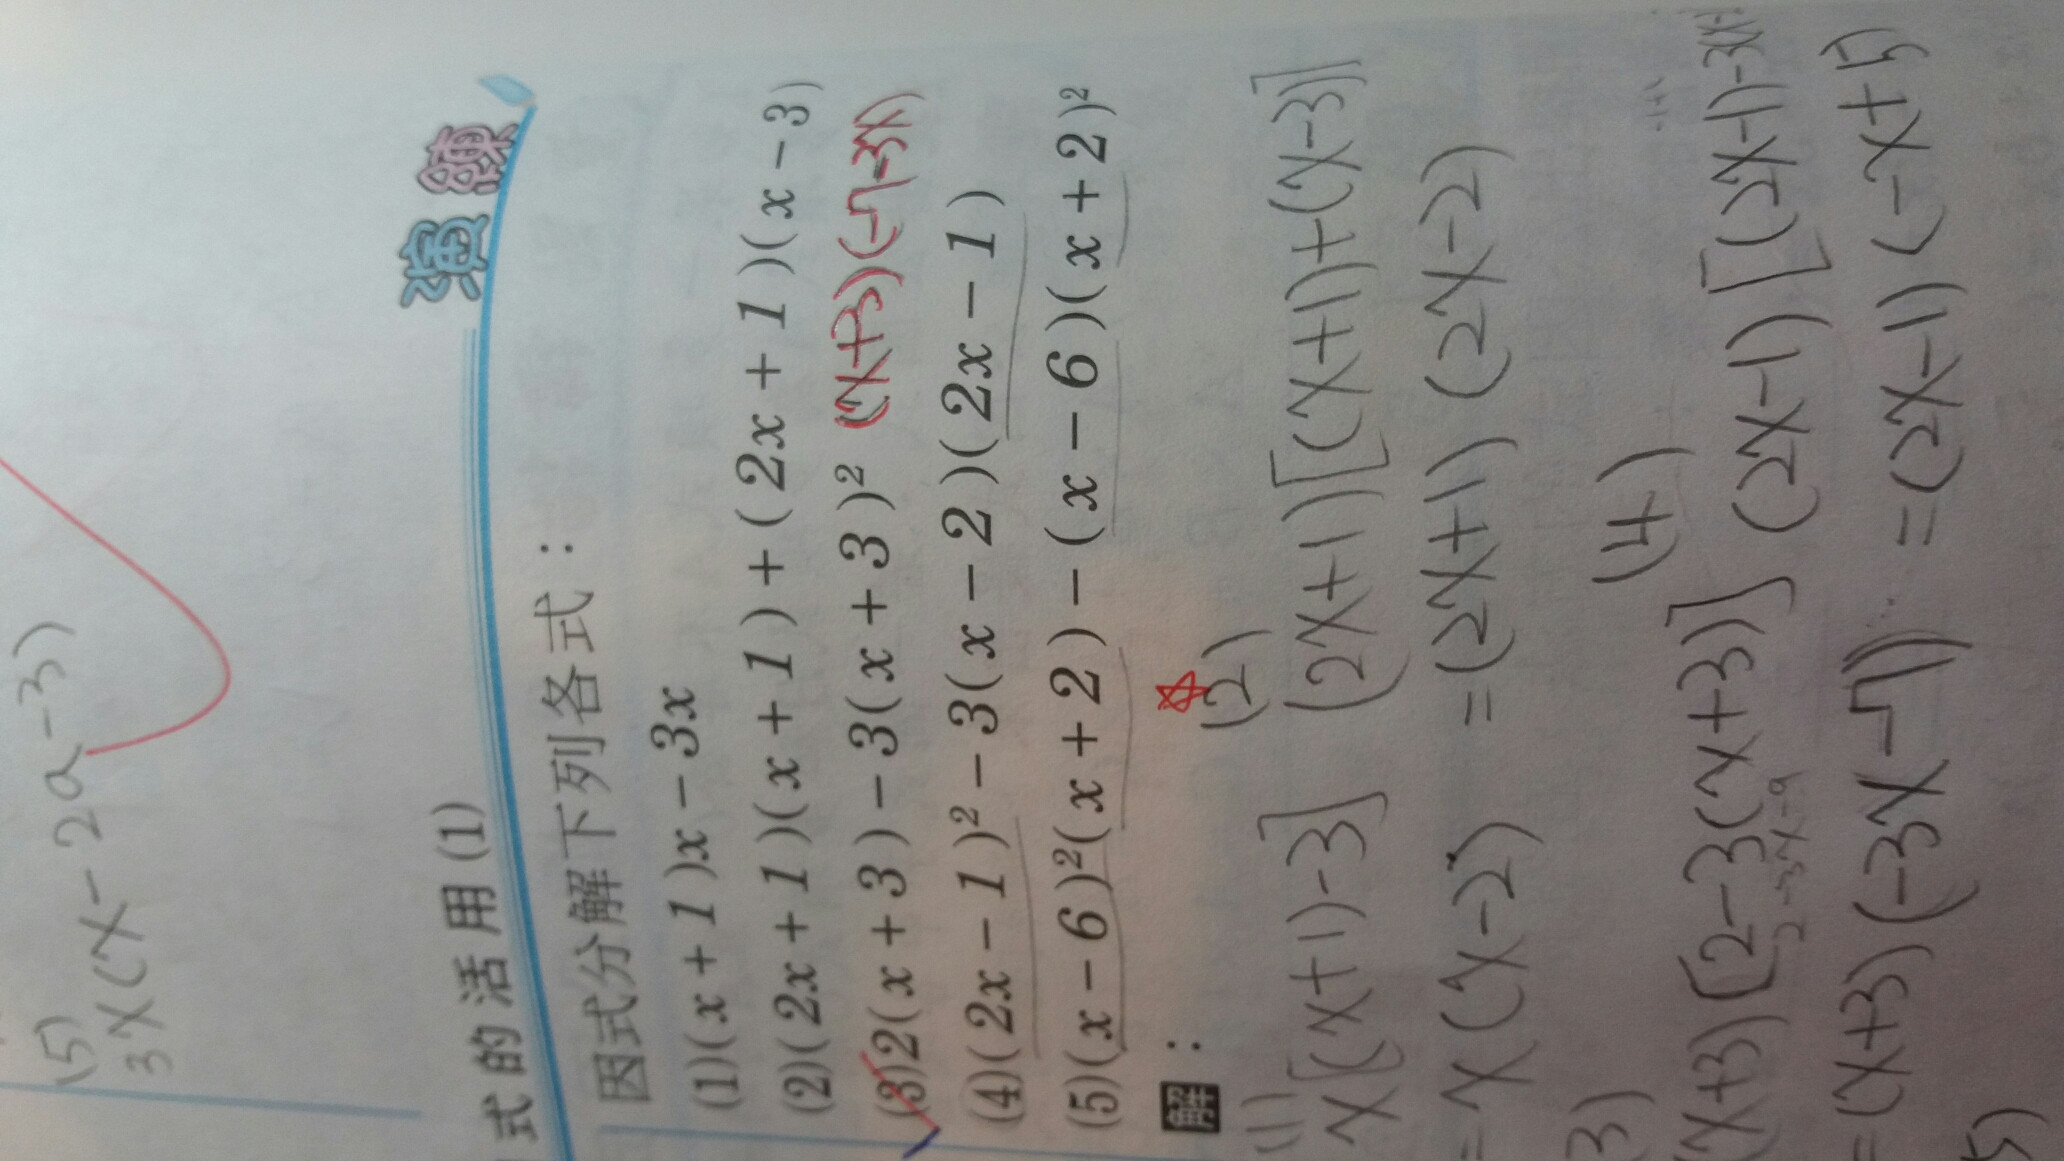 (5)
3x(x-2a-3)
式的活用(1)
演練
因式分解下列各式：
(1)(x+1)x-3x
(2)(2x+1)(x+1)+(2x+1)(x-3)
(3)2(x+3)-3(x+3)² (x+3)(-7-3x)
(4)(2x-1)²-3(x-2)(2x-1)
(5)(x-6)²(x+2)-(x-6)(x+2)²
解：
(1)
x[(x+1)-3]
=x(x-2)
(2)
(2x+1)[(x+1)+(x-3)]
=(2x+1)(2x-2)
3)
(x+3)[2-3(x+3)]
2-3x-9
=(x+3)(-3x-7)
(4)
(2x-1)[(2x-1)-3(x-
=(2x-1)(-x+5)
5)